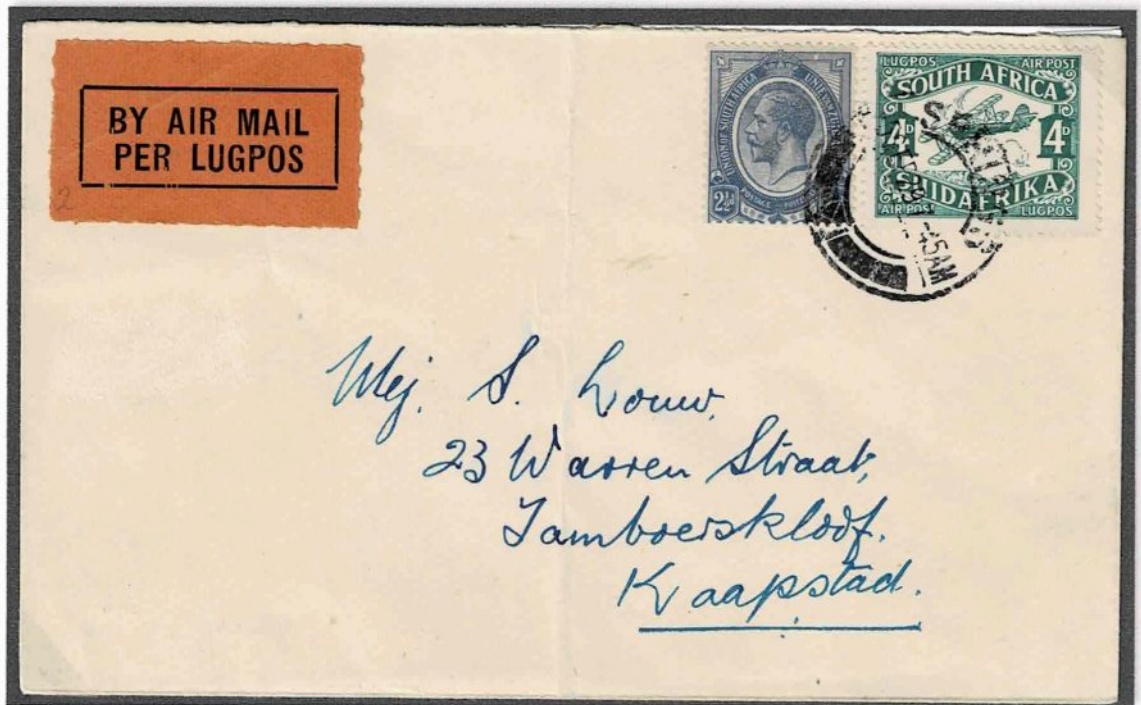 BY AIR MAIL
PER LUGPOS
2
UNION OF SOUTH AFRICA
POSTAGE
2½d
LUGPOS AIR POST
SOUTH AFRICA
4D 4D
SUIDAFRIKA
AIR POST LUGPOS
45AM
Mej. S. Louw,
23 Warren Straat,
Tamboerskloof.
Kaapstad.